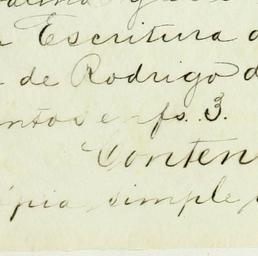 Escritura
de Rodrigo d
ntos en fs. 3.
Conten
ópia simple